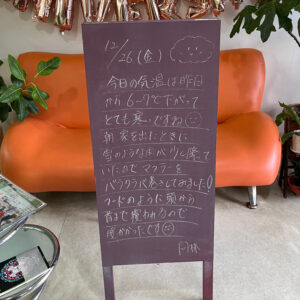 12/26(金)
今日の気温は昨日
から6~7℃下がって
とても寒いですね
朝家を出たときに
雪のような氷が少し降って
いたので マフラーを
バラクラバ巻きしてみました!
フードのように頭から
首まで覆われるので
暖かかったです